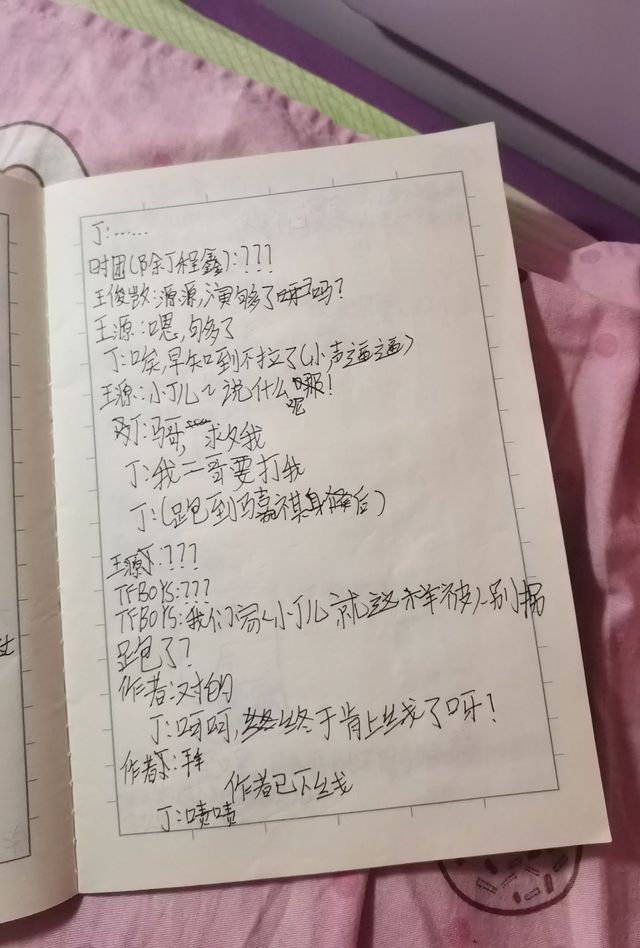 丁:……
时团(除丁程鑫):???
王俊凯:源源,演够了嘛?吗?
王源:嗯,够多了
丁:唉,早知到不拉了(小声逼逼)
王源:小丁儿~说什么呢!
丁:马哥,求夂我
丁:我二哥要打我
丁:(跑到马嘉祺身后)
王源:???
TFBOYS:???
TFBOYS:我们家小丁儿就这样被人别拐
跑了?
作者:对的
丁:呵呵,终于肯上线了呀!
作者:羊
作者已下线
丁:啧啧